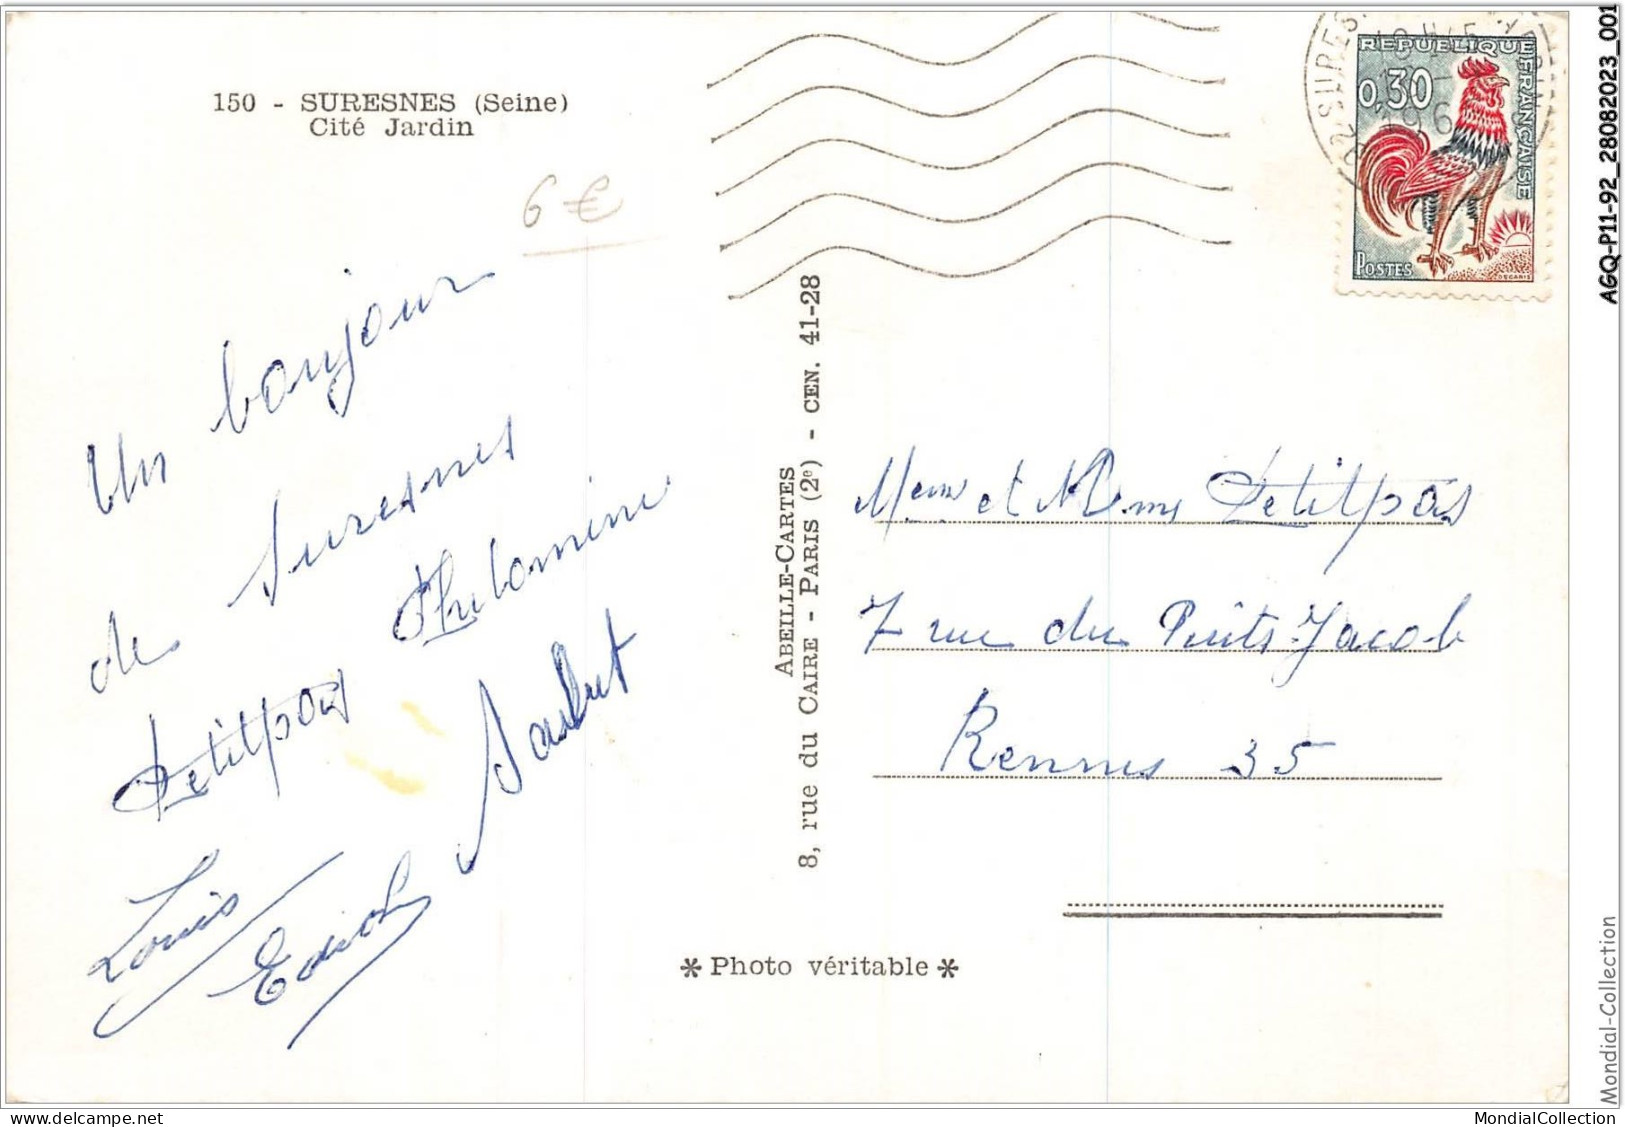 150 - SURESNES (Seine)
Cité Jardin
6 €
Un bonjour
de Suresnes
Petitpas Philomine
Louis Edith
ABEILLE-CARTES
8, rue du CAIRE - PARIS (2e) - CEN. 41-28
* Photo véritable *
REPUBLIQUE FRANÇAISE
0,30
POSTES
DECARIS
SURESNES
196
et Petitpas
7 rue du Puits Jacob
Rennes 35
AGQ-P11-92_28082023_001
Mondial-Collection
MondialCollection
www.delcampe.net